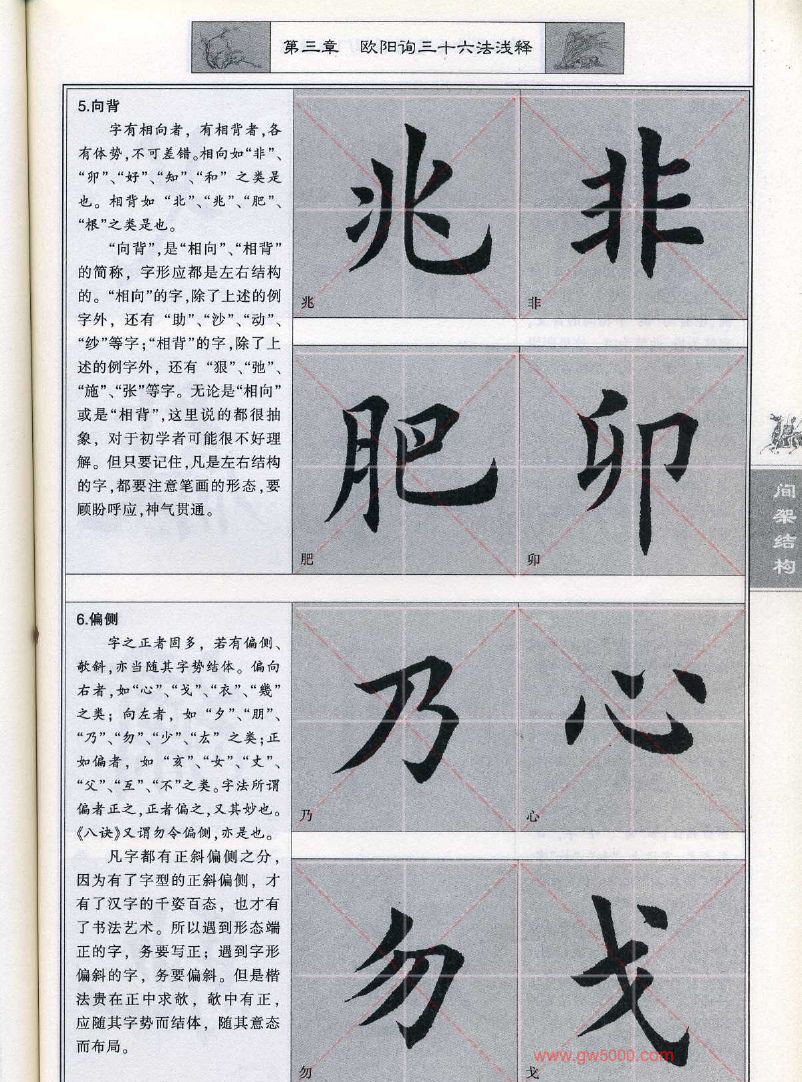 第三章 欧阳询三十六法浅释
5.向背
字有相向者，有相背者,各
有体势,不可差错。相向如“非”、
“卯”、“好”、“知”、“和” 之类是
也。相背如 “北”、“兆”、“肥”、
“根”之类是也。
“向背”,是“相向”、“相背”
的简称，字形应都是左右结构
的。“相向”的字,除了上述的例
字外，还有 “助”、“沙”、“动”、
“纱”等字；“相背”的字,除了上
述的例字外，还有 “狠”、“弛”、
“施”、“张”等字。无论是“相向”
或是“相背”,这里说的都很抽
象，对于初学者可能很不好理
解。但只要记住,凡是左右结构
的字,都要注意笔画的形态,要
顾盼呼应,神气贯通。
兆
兆
非
非
肥
肥
卯
卯
间架结构
6.偏侧
字之正者固多，若有偏侧、
欹斜,亦当随其字势结体。偏向
右者,如“心”、“戈”、“衣”、“幾”
之类；向左者，如 “夕”、“朋”、
“乃”、“勿”、“少”、“厷” 之类;正
如偏者，如 “亥”、“女”、“丈”、
“父”、“互”、“不”之类。字法所谓
偏者正之,正者偏之,又其妙也。
《八诀》又谓勿令偏侧,亦是也。
凡字都有正斜偏侧之分，
因为有了字型的正斜偏侧，才
有了汉字的千姿百态，也才有
了书法艺术。所以遇到形态端
正的字，务要写正；遇到字形
偏斜的字，务要偏斜。但是楷
法贵在正中求欹，欹中有正，
应随其字势而结体，随其意态
而布局。
乃
乃
心
心
勿
勿
戈
戈
www.gw5000.com